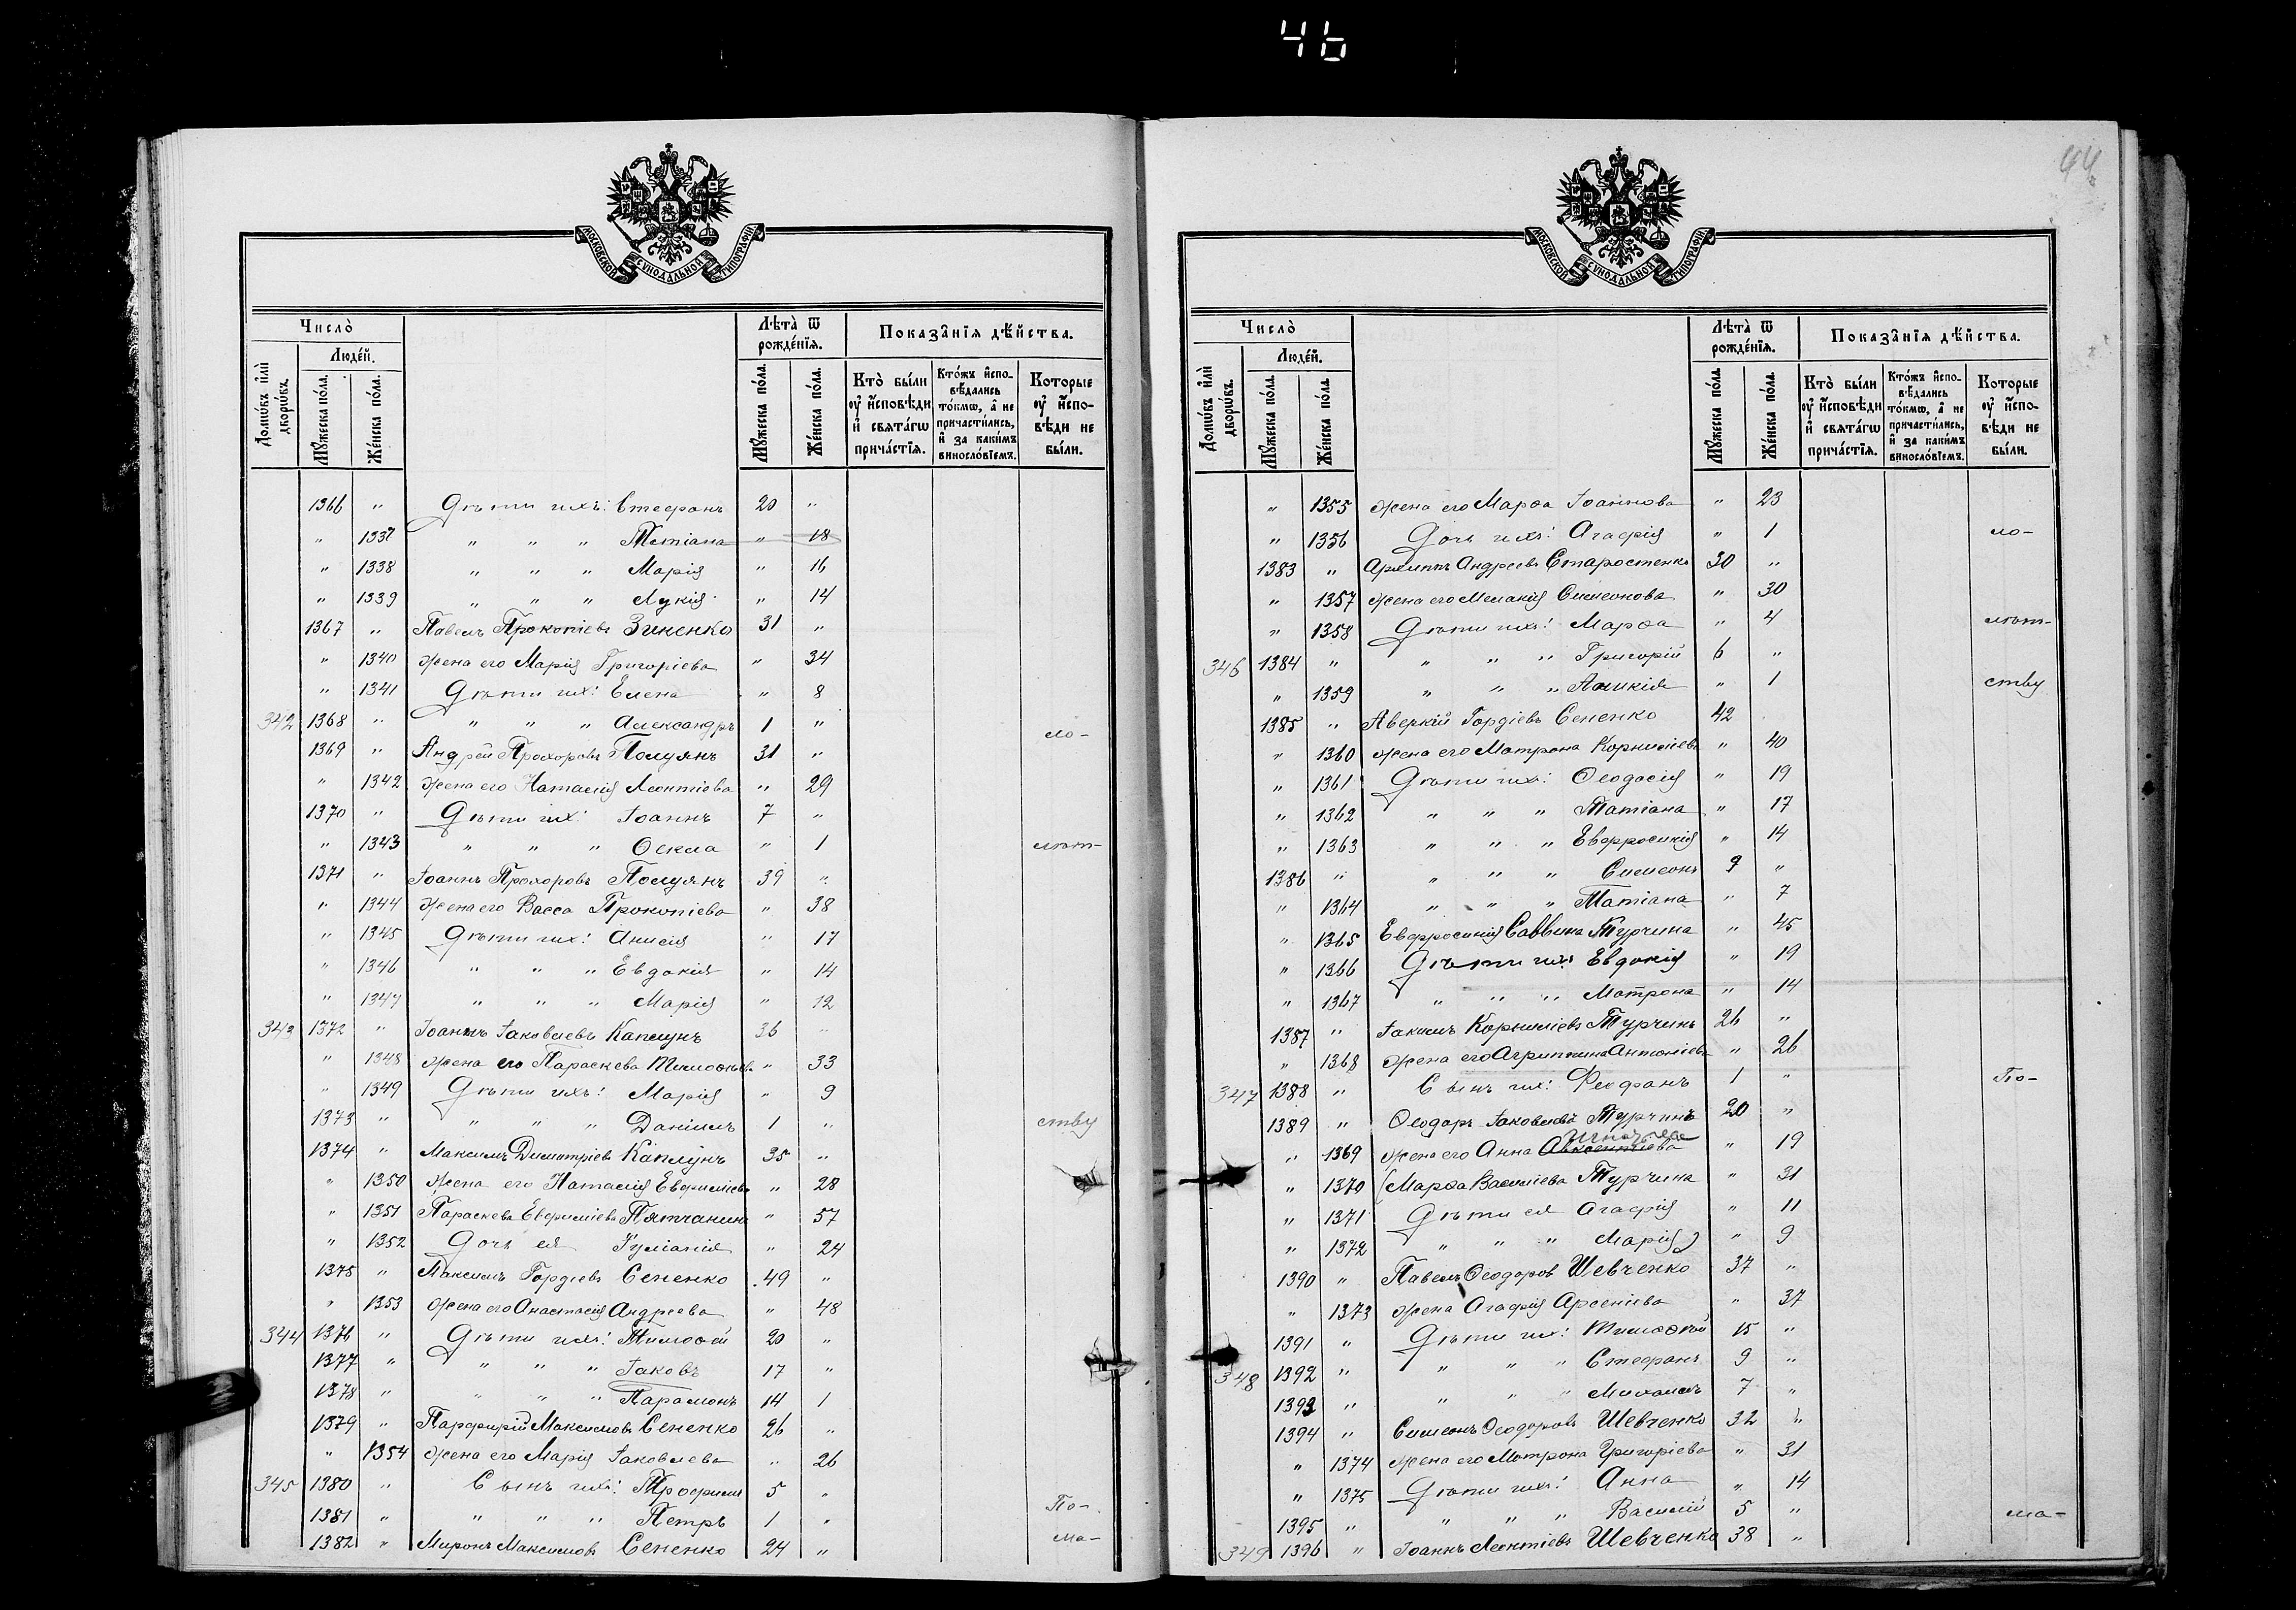 46
МОСКОВСКОЙ СѴНОДАЛЬНОЙ ТИПОГРАФІИ
Число̀
Люде́й.
Домѡ́въ и҆лѝ дворѡ́въ.
Мꙋ́жеска по́ла.
Же́нска по́ла.
Лѣ́та ѿ рожде́нїѧ.
Мꙋ́жеска по́ла.
Же́нска по́ла.
Показа̑нїѧ дѣ́йства.
Кто̀ бы́ли оу҆ и҆сповѣ́ди и҆ свѧта́гѡ прича́стїѧ.
Кто́жъ и҆сповѣ́дались то́кмѡ, а҆ не причасти́лись, и҆ за каки́мъ винослові́емъ.
Кото́рые оу҆ и҆сповѣ́ди не бы́ли.
1366 " Дѣти ихъ: Стефанъ 20 "
" 1337 " " " Татіана " 18
" 1338 " " " Марія " 16
" 1339 " " " Лукія " 14
1367 " Павелъ Прокопіевъ Зиненко 31 "
" 1340 Жена его Марія Григоріева " 34
" 1341 Дѣти ихъ: Елена " 8
342 1368 " " " " Александръ 1 " ло-
1369 " Андрей Прохоровъ Полуянъ 31 "
" 1342 Жена его Наталія Леонтіева " 29
1370 " Дѣти ихъ: Іоаннъ 7 "
" 1343 " " " Ѳекла " 1 лѣт-
1371 " Іоаннъ Прохоровъ Полуянъ 39 "
" 1344 Жена его Васса Прокопіева " 38
" 1345 Дѣти ихъ: Анисія " 17
" 1346 " " " Евдокія " 14
" 1347 " " " Марія " 12
343 1372 " Іоаннъ Іаковлевъ Каплунъ 36 "
" 1348 Жена его Параскева Тимоѳѣева " 33
" 1349 Дѣти ихъ: Марія " 9
1373 " " " " Даніилъ 1 " ству
1374 " Максимъ Димитріевъ Каплунъ 35 "
" 1350 Жена его Наталія Евфиміева " 28
" 1351 Параскева Евфиміева Пятчанина " 57
" 1352 Дочь ея Іуліанія " 24
1375 " Максимъ Гордіевъ Сененко 49 "
" 1353 Жена его Анастасія Андреева " 48
344 1376 " Дѣти ихъ: Тимоѳей 20 "
1377 " " " " Іаковъ 17 "
1378 " " " " Парамонъ 14 1
1379 " Парфирій Максимовъ Сененко 26 "
" 1354 Жена его Марія Іаковлева " 26
345 1380 " Сынъ ихъ: Трофимъ 5 "
1381 " " " " Петръ 1 " По-
1382 " Миронъ Максимовъ Сененко 24 " ма-
44
МОСКОВСКОЙ СѴНОДАЛЬНОЙ ТИПОГРАФІИ
Число̀
Люде́й.
Домѡ́въ и҆лѝ дворѡ́въ.
Мꙋ́жеска по́ла.
Же́нска по́ла.
Лѣ́та ѿ рожде́нїѧ.
Мꙋ́жеска по́ла.
Же́нска по́ла.
Показа̑нїѧ дѣ́йства.
Кто̀ бы́ли оу҆ и҆сповѣ́ди и҆ свѧта́гѡ прича́стїѧ.
Кто́жъ и҆сповѣ́дались то́кмѡ, а҆ не причасти́лись, и҆ за каки́мъ винослові́емъ.
Кото́рые оу҆ и҆сповѣ́ди не бы́ли.
" 1355 Жена его Марѳа Іоаннова " 23
" 1356 Дочь ихъ: Агафія " 1 ло-
1383 " Архиппъ Андреевъ Старостенко 30 "
" 1357 Жена его Меланія Симеонова " 30
" 1358 Дѣти ихъ: Марѳа " 4 лѣт-
346 1384 " " " " Григорій 6 "
" 1359 " " " " 1 ству
1385 " Аверкій Гордіевъ Сененко 42
" 1360 Жена его Матрона Корниліева " 40
" 1361 Дѣти ихъ: Ѳеодосія " 19
" 1362 " " " Татіана " 17
" 1363 " " " Евфросинія " 14
1386 " " " " Симеонъ 9 "
" 1364 " " " Татіана " 7
" 1365 Евфросинія Саввина Турчина " 45
" 1366 Дѣти ихъ Евдокія " 19
" 1367 " " " Матрона " 14
1387 " Іакимъ Корниліевъ Турчинъ 26 "
" 1368 Жена его Агриппина Антоніева " 26
347 1388 " Сынъ ихъ: Феофанъ 1 " По-
1389 " Ѳеодоръ Іаковлевъ Турчинъ 20 "
Игнатьева
" 1369 Жена его Анна Авксентіева " 19
" 1370 (Марѳа Василіева Турчина " 31
" 1371 Дѣти ея Агафія " 11
" 1372 " " " Марія) " 9
1390 " Павелъ Ѳеодоровъ Шевченко 37 "
" 1373 Жена Агафія Арсеніева " 37
1391 " Дѣти ихъ: Тимоѳѣй 15 "
348 1392 " " " " Стефанъ 9 "
1393 " " " " Михаилъ 7 "
1394 " Симеонъ Ѳеодоровъ Шевченко 32 "
" 1374 Жена его Матрона Григоріева " 31
" 1375 Дѣти ихъ: Анна " 14
1395 " " " " Василій 5 " ма-
349 1396 " Іоаннъ Леонтіевъ Шевченко 38 "